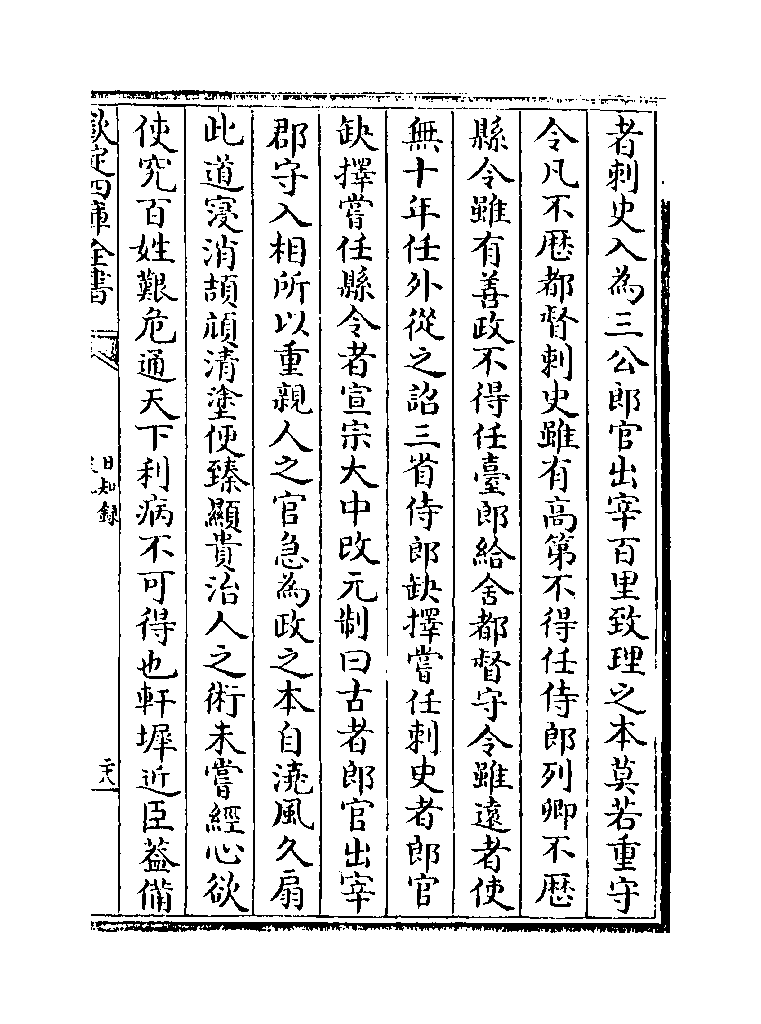 者刺史入為三公郎官出宰百里致理之本莫若重守
令凡不歴都督刺史雖有高第不得任侍郎列卿不歴
縣令雖有善政不得任臺郎給舍都督守令雖遠者使
無十年任外從之詔三省侍郎缺擇嘗任刺史者郎官
缺擇嘗任縣令者宣宗大中改元制曰古者郎官出宰
郡守入相所以重親人之官急為政之本自澆風久扇
此道寖消頡頏清塗便臻顯貴治人之術未嘗經心欲
使究百姓艱危通天下利病不可得也軒墀近臣葢備
欽定四庫全書
日知錄
二十八